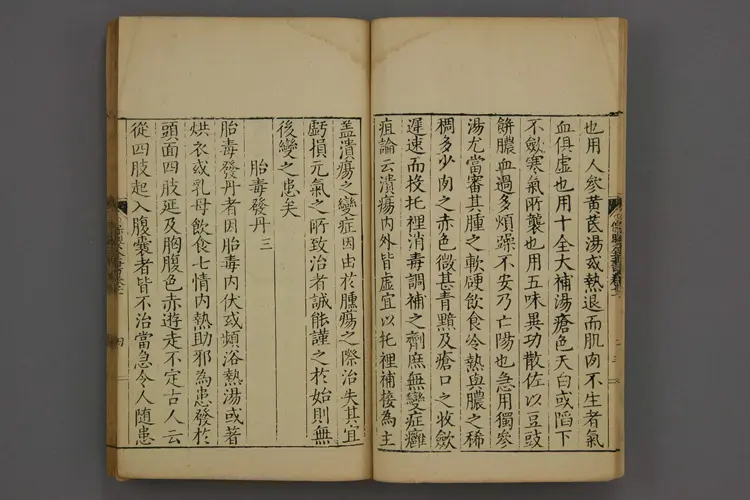 也用人參黃芪湯或熱退而肌肉不生者氣
血俱虛也用十全大補湯瘡色夭白或陷下
不斂寒氣所襲也用五味異功散佐以豆豉
餅膿血過多煩躁不安乃亡陽也急用獨參
湯尤當審其腫之軟硬飲食冷熱與膿之稀
稠多少肉之赤色微甚青黯及瘡口之收斂
遲速而投托裡消毒調補之劑庶無變症癰
疽論云潰瘍內外皆虛宜以托裡補接為主
蓋潰瘍之變症因由於腫瘍之際治失其宜
虧損元氣之所致治者誠能謹之於始則無
後變之患矣
胎毒發丹三
胎毒發丹者因胎毒內伏或頻浴熱湯或著
烘衣或乳母飲食七情內熱助邪為患發於
頭面四肢延及胸腹色赤遊走不定古人云
從四肢起入腹囊者皆不治當急令人隨患